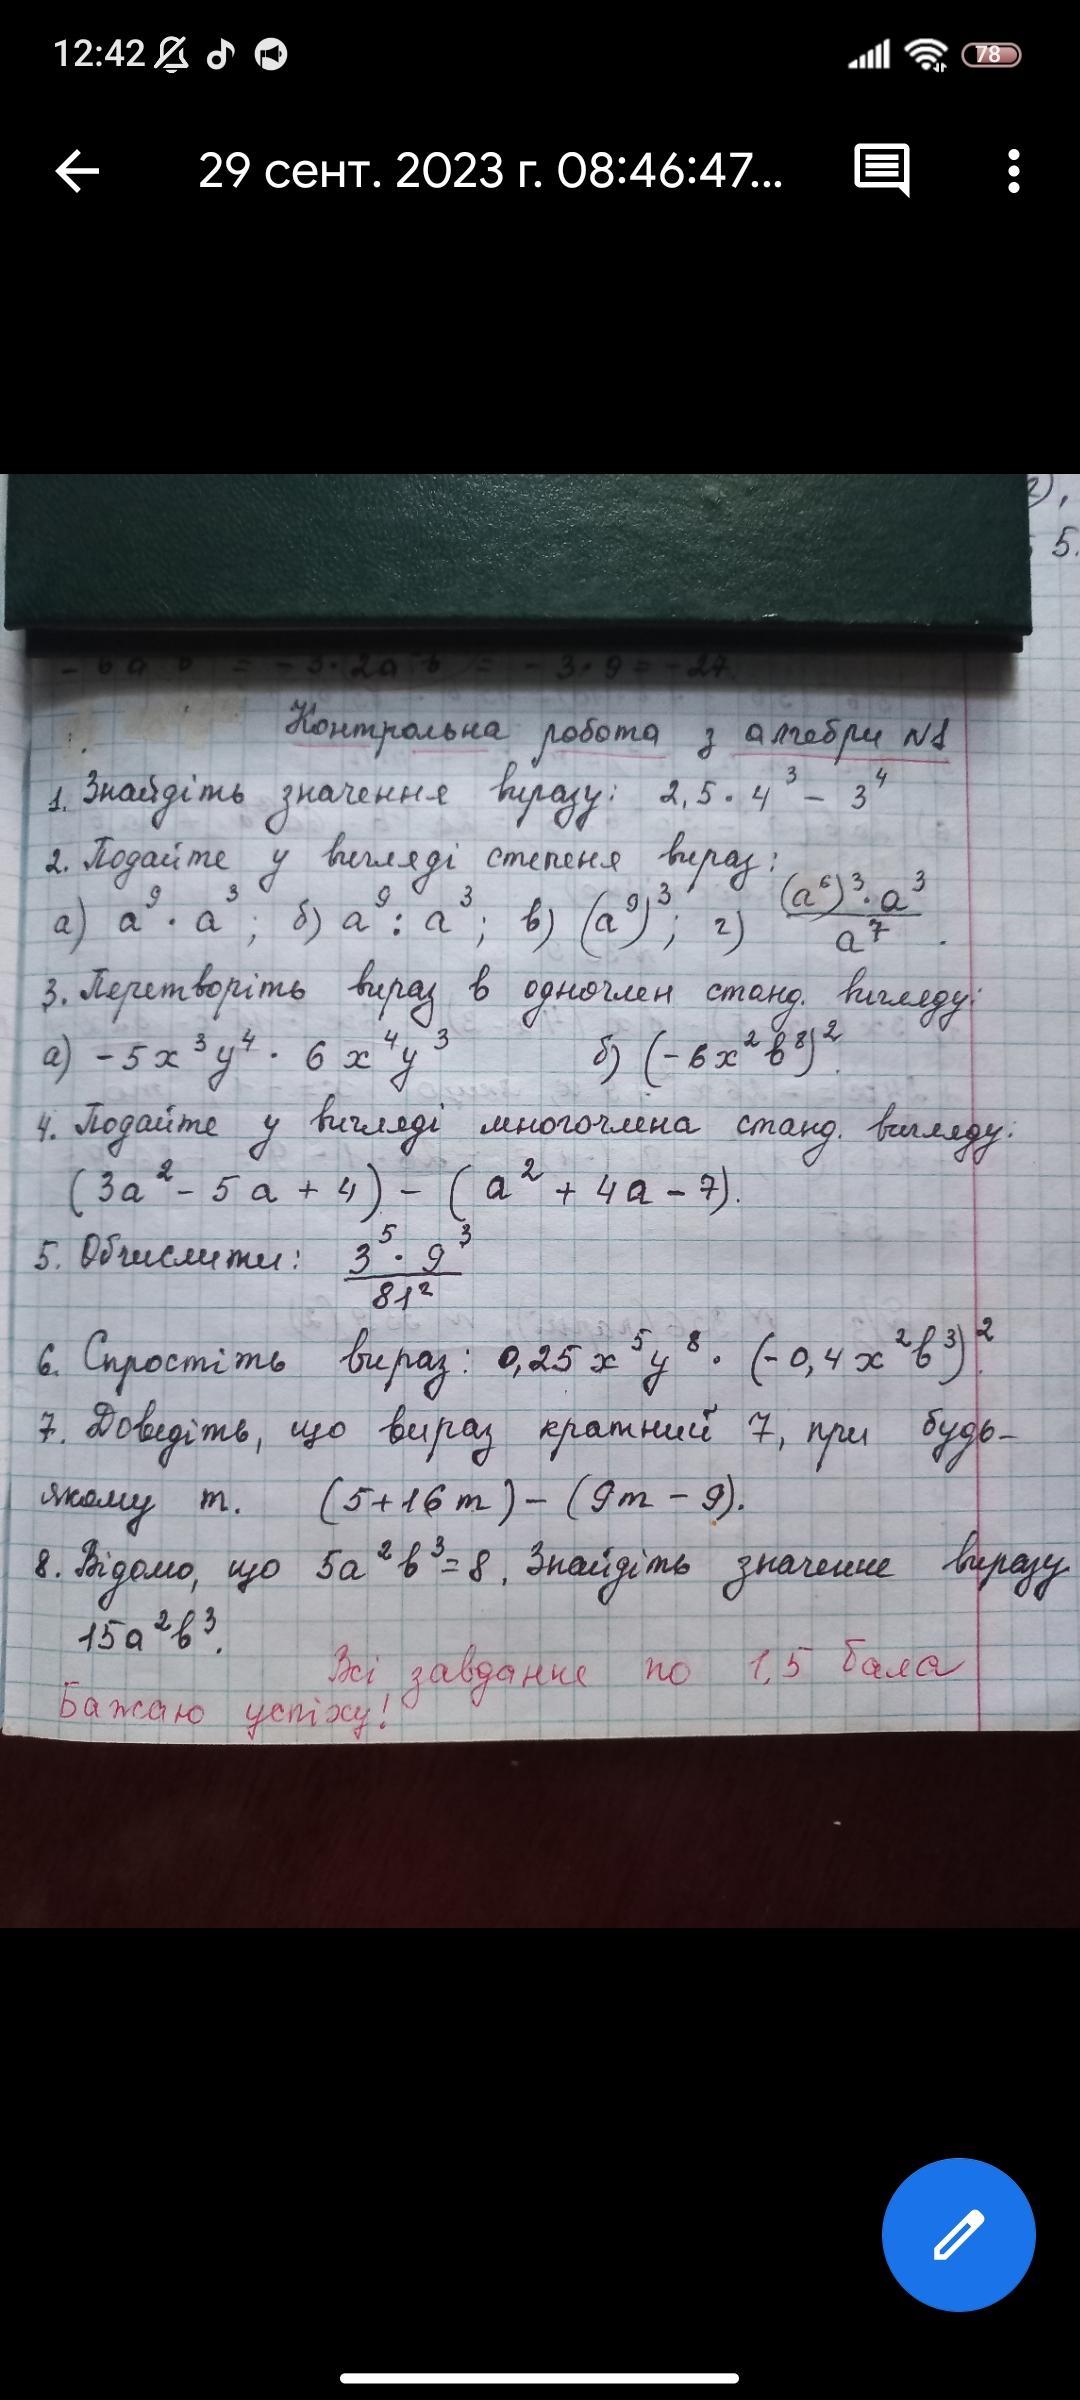 12:42
78
29 сент. 2023 г. 08:46:47...
5.
= -3·2a b = -3·9 = -27.
Контрольна робота з алгебри №1
1. Знайдіть значення виразу: 2,5·4³ - 3⁴
2. Подайте у вигляді степеня вираз:
а) a⁹·a³; б) a⁹:a³; в) (a⁹)³; г) (a⁶)³·a³ / a⁷.
3. Перетворіть вираз в одночлен станд. вигляду:
а) -5x³y⁴·6x⁴y³ б) (-6x²b⁸)².
4. Подайте у вигляді многочлена станд. вигляду:
(3a² - 5a + 4) - (a² + 4a - 7).
5. Обчислити: 3⁵·9³ / 81²
6. Спростіть вираз: 0,25x⁵y⁸·(-0,4x²b³)².
7. Доведіть, що вираз кратний 7, при будь-
якому m. (5+16m) - (9m - 9).
8. Відомо, що 5a²b³=8. Знайдіть значення виразу
15a²b³.
Всі завдання по 1,5 бала
Бажаю успіху!